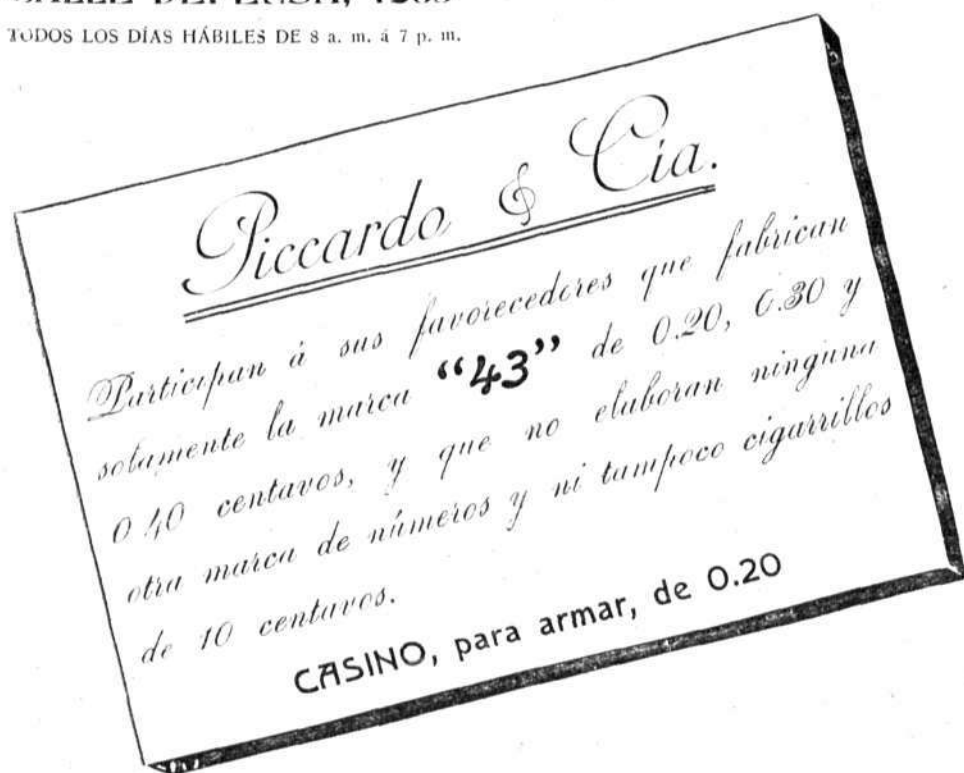 TODOS LOS DÍAS HÁBILES DE 8 a. m. á 7 p. m.
Piccardo & Cía.
Participan á sus favorecedores que fabrican
solamente la marca “43” de 0.20, 0.30 y
0.40 centavos, y que no elaboran ninguna
otra marca de números y ni tampoco cigarrillos
de 10 centavos.
CASINO, para armar, de 0.20